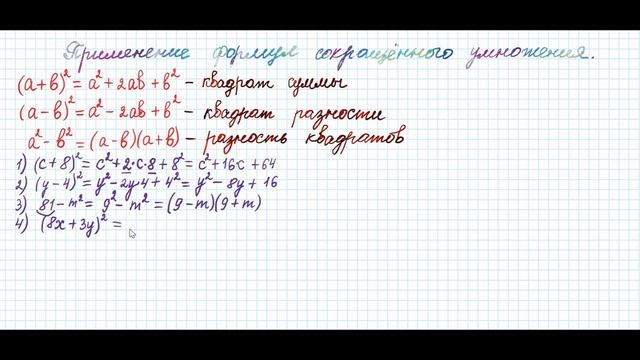 Применение формул сокращённого умножения.
(a+в)² = a² + 2aв + в² – квадрат суммы
(a–в)² = a² – 2aв + в² – квадрат разности
a² – в² = (a–в)(a+в) – разность квадратов
1) (c+8)² = c² + 2·c·8 + 8² = c² + 16c + 64
2) (y–4)² = y² – 2y·4 + 4² = y² – 8y + 16
3) 81 – m² = 9² – m² = (9–m)(9+m)
4) (8x+3y)² =